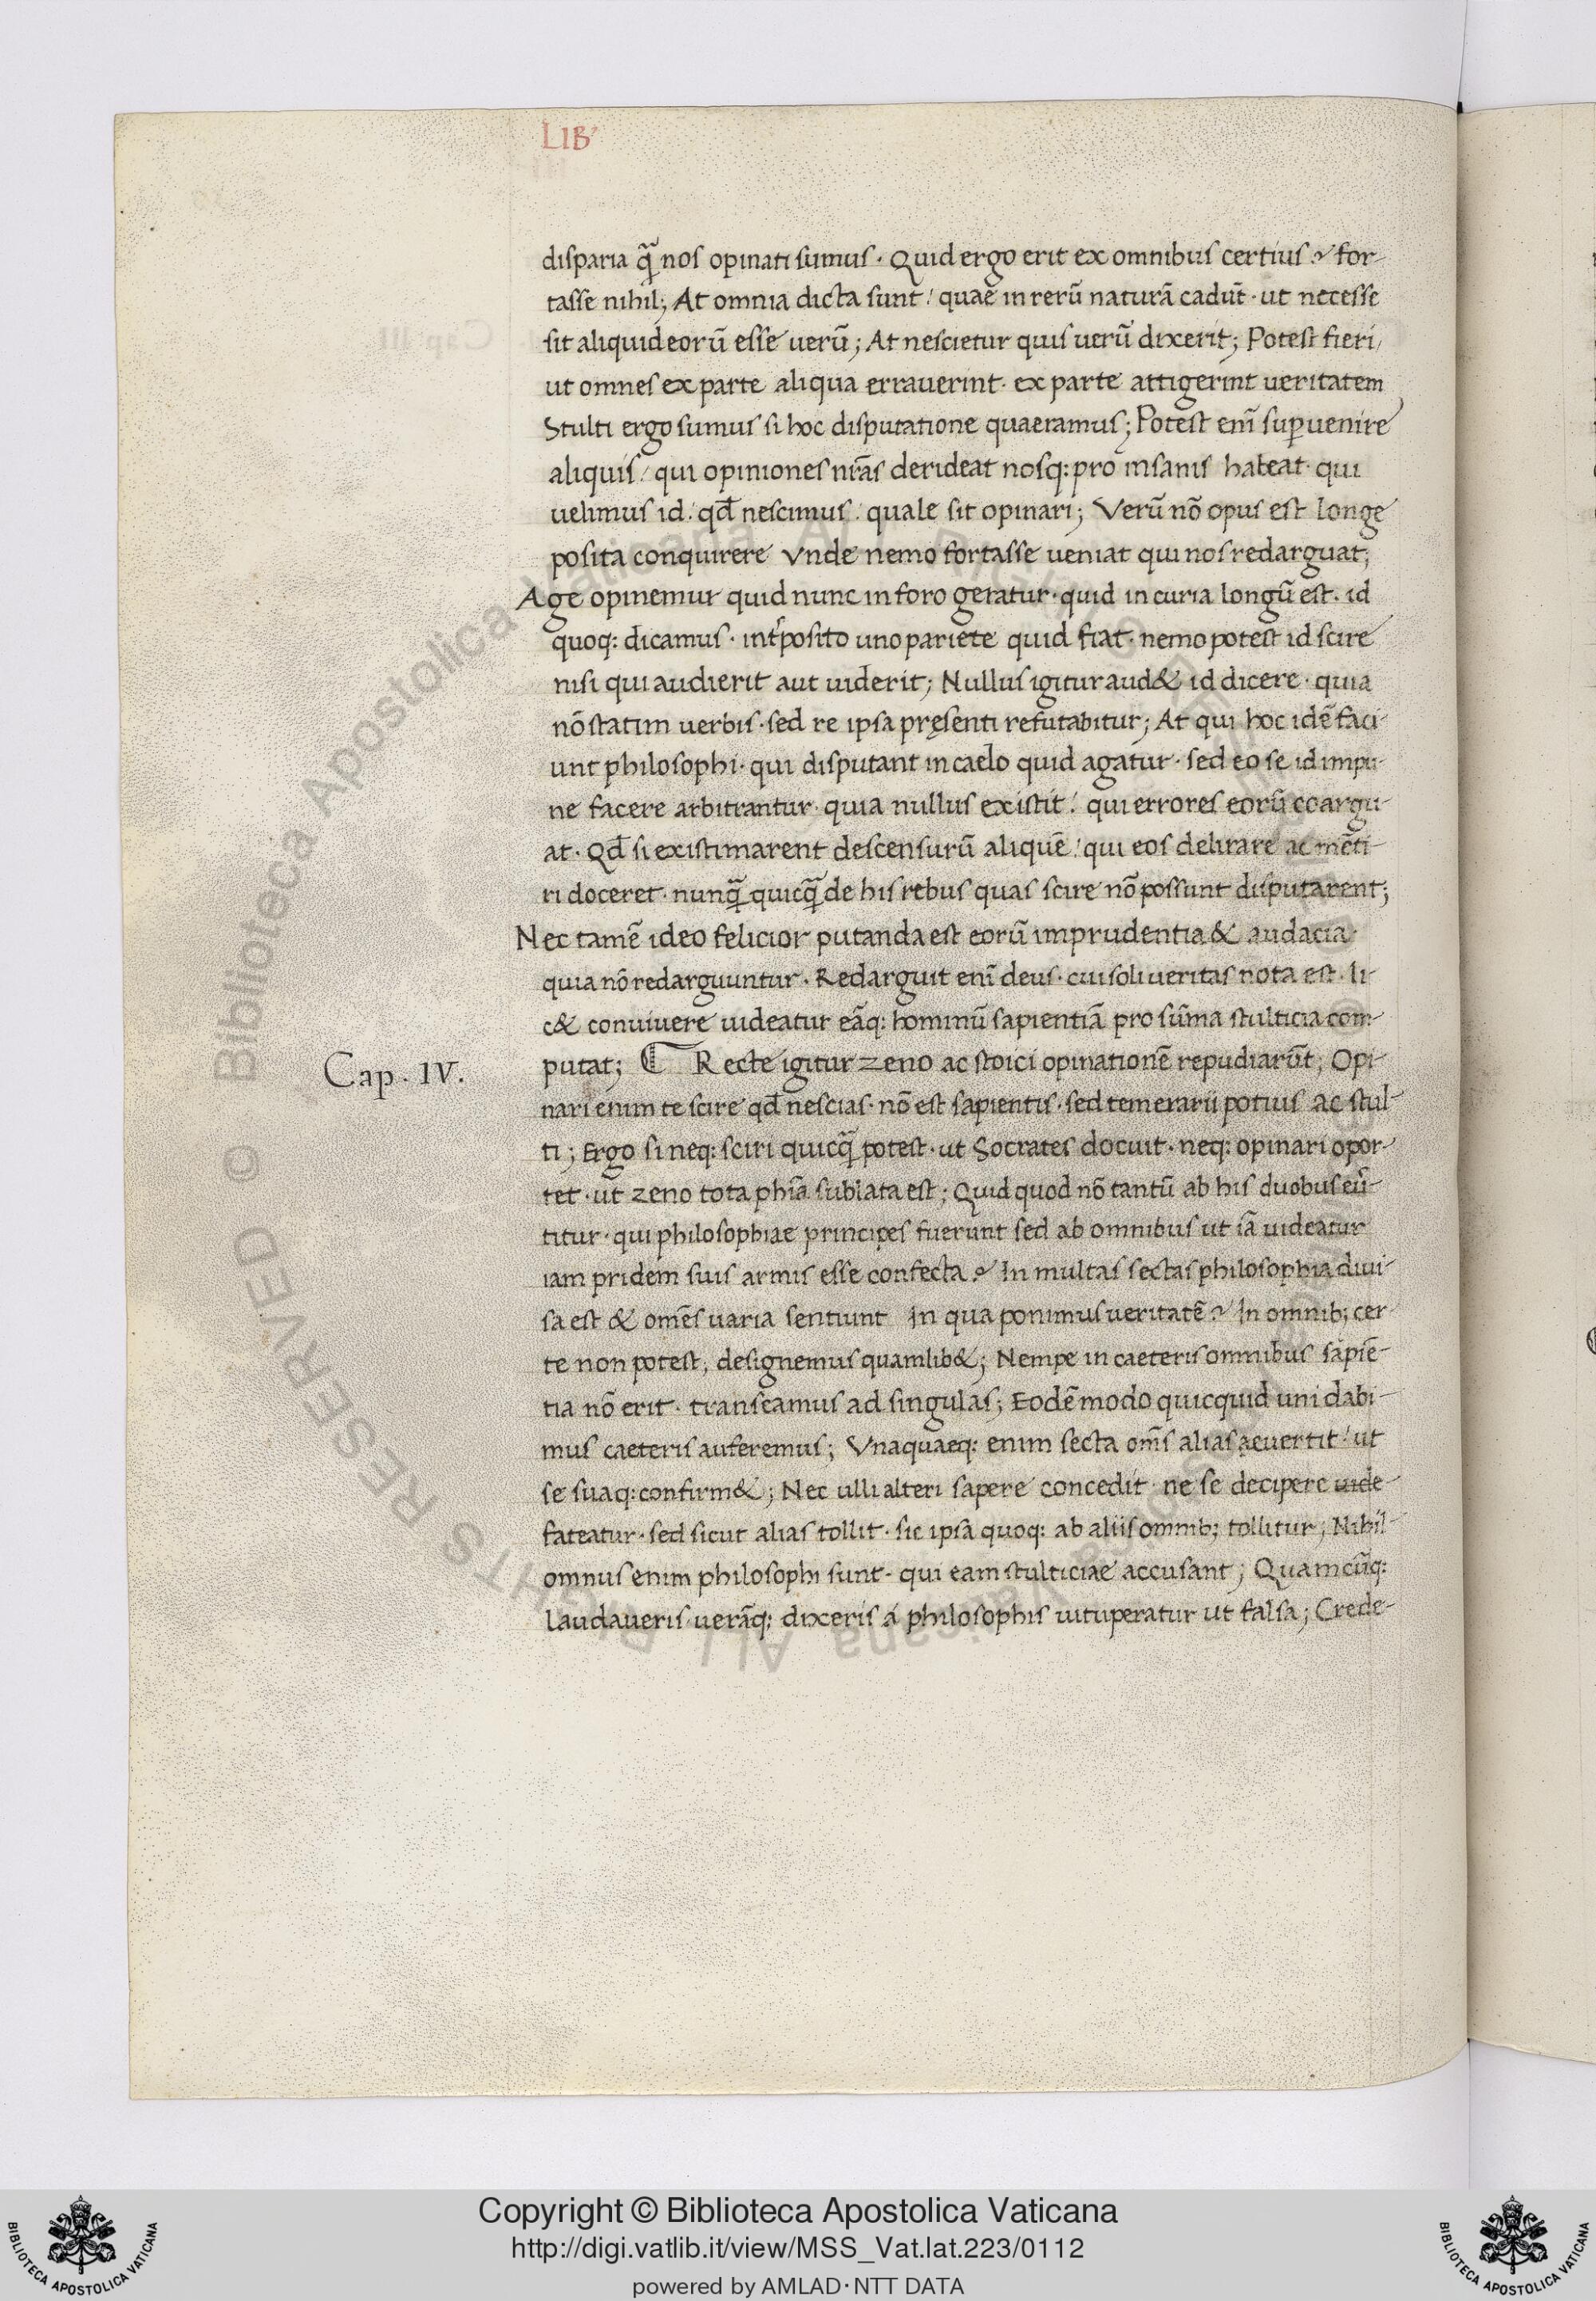 LIB'
disparia q̃ nos opinati sumus · Quid ergo erit ex omnibus certius ? for-
tasse nihil; At omnia dicta sunt / quae in rerũ naturã cadũt · ut necesse
sit aliquid eorũ esse uerũ; At nescietur quis uerũ dixerit; Potest fieri /
ut omnes ex parte aliqua errauerint · ex parte attigerint ueritatem
Stulti ergo sumus si hoc disputatione quaeramus; Potest enĩ sup̱uenire
aliquis / qui opiniones nr̃as derideat nosq: pro insanis habeat · qui
uelimus id / qđ nescimus / quale sit opinari; Verũ nõ opus est longe
posita conquirere Vnde nemo fortasse ueniat qui nos redarguat;
Age opinemur quid nunc in foro geratur · quid in curia longũ est · id
quoq: dicamus · int̉posito uno pariete quid fiat · nemo potest id scire
nisi qui audierit aut uiderit; Nullus igitur aud& id dicere · quia
nõ statim uerbis · sed re ipsa pręsenti refutabitur; At qui hoc idẽ faci-
unt philosophi · qui disputant in caelo quid agatur · sed eo se id impu-
ne facere arbitrantur · quia nullus existit / qui errores eorũ coargu-
at · Qđ si existimarent descensurũ aliquẽ / qui eos delirare ac mẽti-
ri doceret · nunq̃ quicq̃ de his rebus quas scire nõ possunt disputarent;
Nec tamẽ ideo felicior putanda est eorũ imprudentia & audacia ·
quia nõ redarguuntur · Redarguit enĩ deus · cui soli ueritas nota est · li-
c& conuiuere uideatur eãq: hominũ sapientiã pro sũma stulticia com-
putat; Recte igitur zeno ac stoici opinationẽ repudiarũt; Opi-
Cap. IV.
nari enim te scire qđ nescias · nõ est sapientis · sed temerarii potius ac stul-
ti; Ergo si neq: sciri quicq̃ potest · ut Socrates docuit · neq: opinari opor-
tet · ut zeno tota phĩa sublata est; Quid quod nõ tantũ ab his duobus eũ-
titur · qui philosophiae principes fuerunt sed ab omnibus ut iã uideatur
iam pridem suis armis esse confecta ? In multas sectas philosophia diui-
sa est & om̃es uaria sentiunt In qua ponimus ueritatẽ ? In omnib; cer-
te non potest, designemus quamlib&; Nempe in caeteris omnibus sapiẽ-
tia nõ erit · transeamus ad singulas; Eodẽ modo quicquid uni dabi-
mus caeteris auferemus; Vnaquaeq: enim secta om̃s alias aeuertit / ut
se suaq: confirm&; Nec ulli alteri sapere concedit · ne se decipere uide
fateatur · sed sicut alias tollit · sic ipsa quoq: ab aliis omnib; tollitur; Nihil-
omnus enim philosophi sunt · qui eam stulticiae accusant; Quamcũq:
laudaueris uerãq: dixeris á philosophis uituperatur ut falsa; Crede-
© Biblioteca Apostolica Vaticana ALL RIGHTS RESERVED
Copyright © Biblioteca Apostolica Vaticana
http://digi.vatlib.it/view/MSS_Vat.lat.223/0112
powered by AMLAD·NTT DATA
BIBLIOTECA APOSTOLICA VATICANA
BIBLIOTECA APOSTOLICA VATICANA